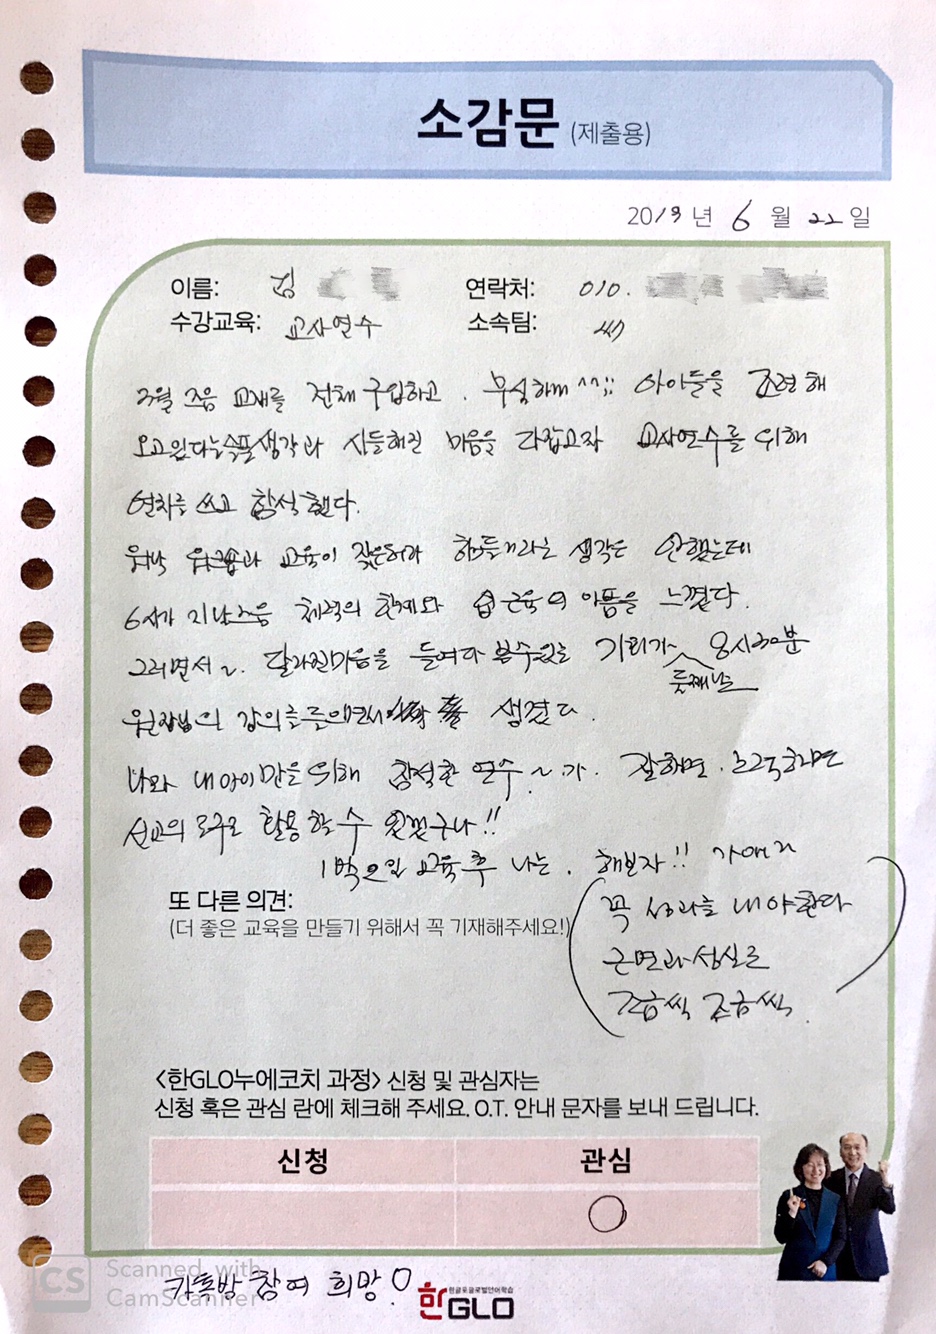 소감문 (제출용)
2019년 6월 22일
이름: 김
연락처: 010.
수강교육: 교사연수
소속팀:
3월 즈음 교재를 전체 구입하고. 무심하게 ^^;; 아이들을 조련해
오고있다는 슬픈생각과 시들해진 마음을 다잡고자 교사연수를 위해
연차를 쓰고 참석했다.
워낙 교육이 잦은터라 힘들거라는 생각은 안했는데
6시가 지날즈음 체력의 한계와 입근육의 아픔을 느꼈다.
그러면서~. 달라진마음을 들여다 볼수있는 기회가 둘째날 8시30분
원장님의 강의를들으면서 생겼다.
나와 내아이만을 위해 참석한 연수~가. 잘하면. 노력하면
선교의 도구로 활용할 수 있겠구나!!
1박2일 교육후 나는. 해보자!!
꼭 성과를 내야한다
근면과성실로
조금씩 조금씩.
또 다른 의견:
(더 좋은 교육을 만들기 위해서 꼭 기재해주세요!)
<한GLO누에코치 과정> 신청 및 관심자는
신청 혹은 관심 란에 체크해 주세요. O.T. 안내 문자를 보내 드립니다.
신청 관심
카톡방 참여 희망!
한글로글로벌언어학습
한GLO
CS Scanned with
CamScanner